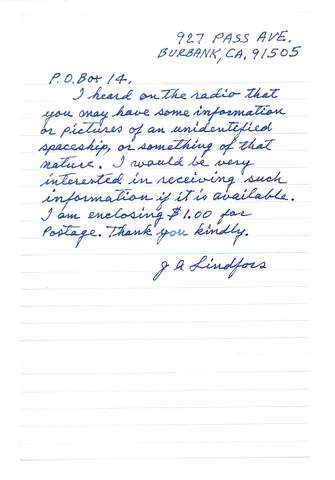 927 PASS AVE.
BURBANK, CA. 91505
P.O. Box 14,
I heard on the radio that
you may have some information
or pictures of an unidentified
spaceship, or something of that
nature. I would be very
interested in receiving such
information if it is available.
I am enclosing $1.00 for
Postage. Thank you kindly.
J A Lindfors